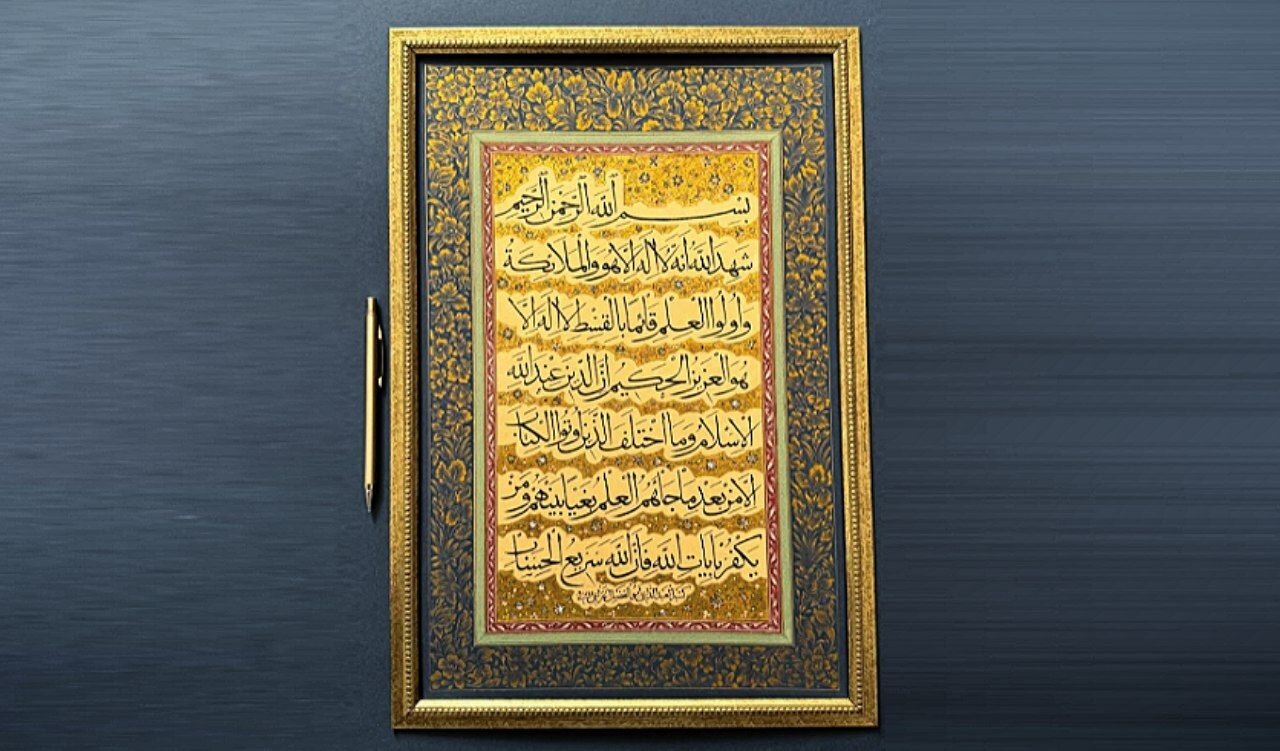 بِسْمِ ٱللَّهِ ٱلرَّحْمٰنِ ٱلرَّحِيمِ
شَهِدَ اللّٰهُ أَنَّهُ لَا إِلٰهَ إِلَّا هُوَ وَالْمَلَائِكَةُ
وَأُولُوا الْعِلْمِ قَائِمًا بِالْقِسْطِ لَا إِلٰهَ إِلَّا
هُوَ الْعَزِيزُ الْحَكِيمُ إِنَّ الدِّينَ عِنْدَ اللّٰهِ
الْإِسْلَامُ وَمَا اخْتَلَفَ الَّذِينَ أُوتُوا الْكِتَابَ
إِلَّا مِنْ بَعْدِ مَا جَاءَهُمُ الْعِلْمُ بَغْيًا بَيْنَهُمْ وَمَنْ
يَكْفُرْ بِآيَاتِ اللّٰهِ فَإِنَّ اللّٰهَ سَرِيعُ الْحِسَابِ